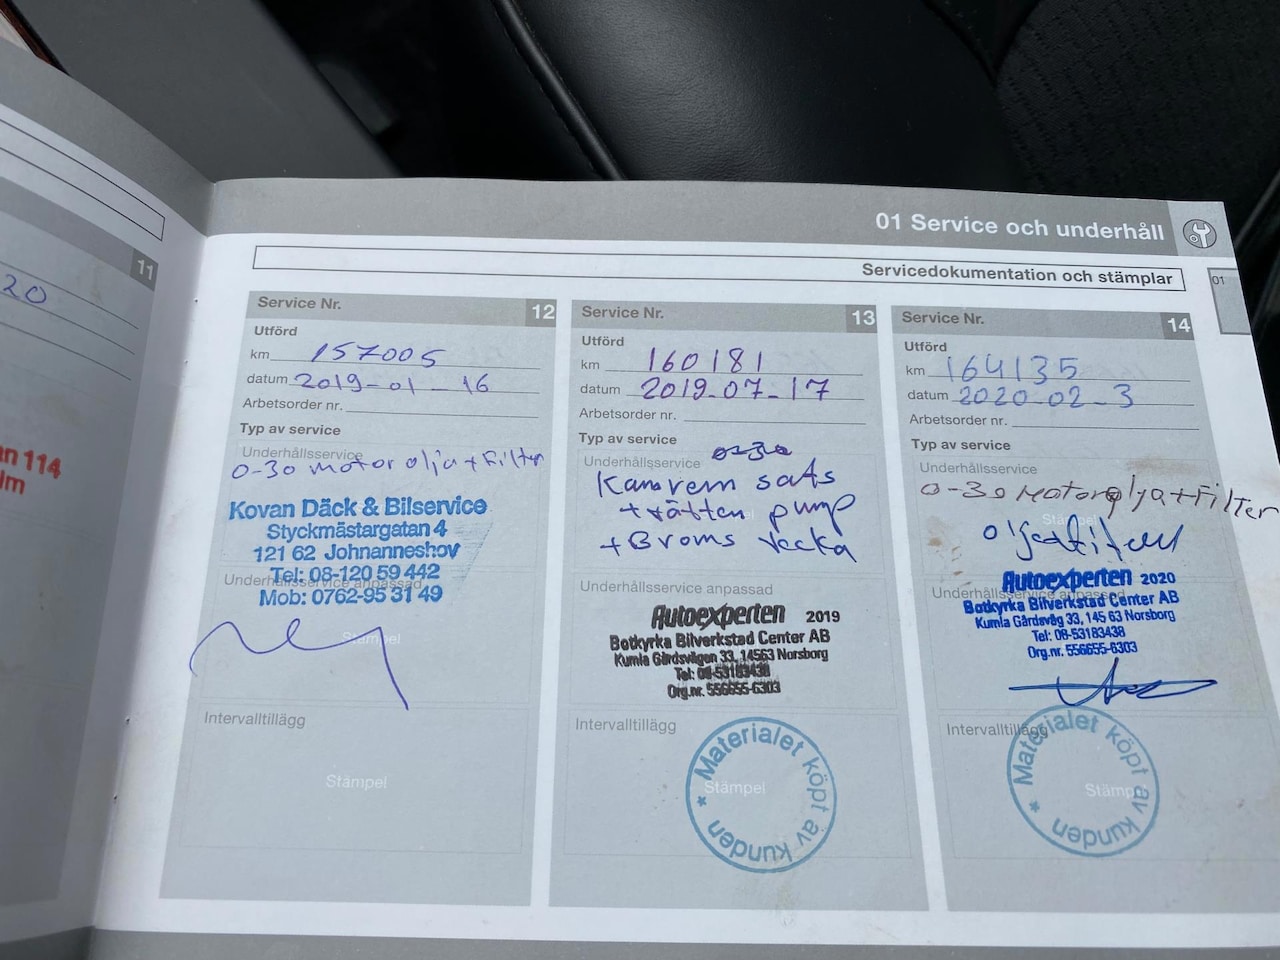 01 Service och underhåll
Servicedokumentation och stämplar
01
11
20
n 114
lm
Service Nr. 12
Utförd
km 157005
datum 2019-01-16
Arbetsorder nr.
Typ av service
Underhållsservice
0-30 motor olja + Filter
Kovan Däck & Bilservice
Styckmästargatan 4
121 62 Johnanneshov
Tel: 08-120 59 442
Underhållsservice anpassad
Mob: 0762-95 31 49
Stämpel
Intervalltillägg
Stämpel
Service Nr. 13
Utförd
km 160181
datum 2019-07-17
Arbetsorder nr.
Typ av service
Underhållsservice
Kamrem sats
+ vatten pump
+ Broms
Underhållsservice anpassad
Autoexperten 2019
Botkyrka Bilverkstad Center AB
Kumla Gårdsvägen 33, 14563 Norsborg
Tel: 08-53183438
Org.nr. 556655-6303
Intervalltillägg
Stämpel
* Materialet köpt av kunden
Service Nr. 14
Utförd
km 164135
datum 2020-02-3
Arbetsorder nr.
Typ av service
Underhållsservice
0-30 Motorolja + Filter
Autoexperten 2020
Underhållsservice anpassad
Botkyrka Bilverkstad Center AB
Kumla Gårdsväg 33, 145 63 Norsborg
Tel: 08-53183438
Org.nr. 556655-6303
Intervalltillägg
Stämpel
* Materialet köpt av kunden